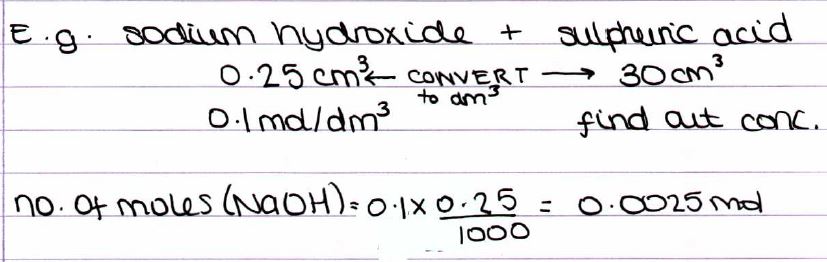 E.g. sodium hydroxide + sulphuric acid
0.25 cm³ ← CONVERT to dm³ → 30cm³
0.1 mol/dm³ find out conc.
no. of moles (NaOH) = 0.1 x 0.25/1000 = 0.0025 mol